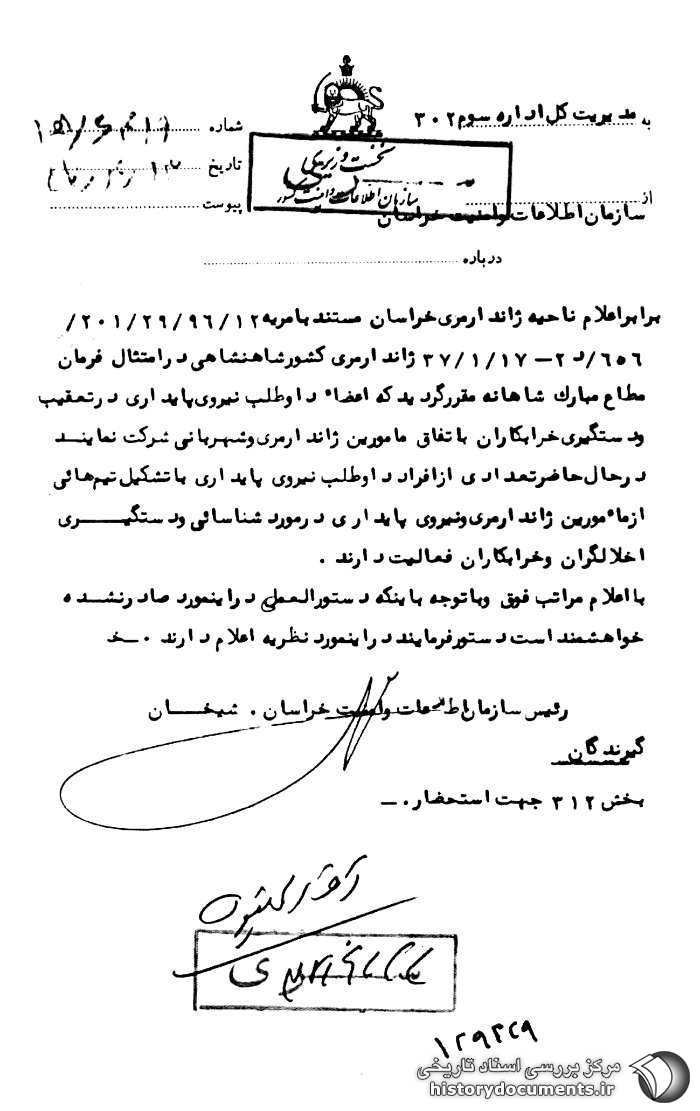 به مدیریت کل اداره سوم ۳۰۲
شماره
نخست وزیری
تاریخ
سازمان اطلاعات و امنیت کشور
از
پیوست
سازمان اطلاعات و امنیت خراسان
درباره
برابر اعلام ناحیه ژاندارمری خراسان مستند بامریه ۲۰۱/۲۹/۹۶/۱۲/
۶۵۶/د۲ـ ۳۷/۱/۱۷ ژاندارمری کشور شاهنشاهی در امتثال فرمان
مطاع مبارك شاهانه مقرر گردید که اعضاء داوطلب نیروی پایداری در تعقیب
ودستگیری خرابکاران باتفاق مامورین ژاندارمری وشهربانی شرکت نمایند
در حال حاضر تعدادی از افراد داوطلب نیروی پایداری با تشکیل تیم‌هائی
از ماءمورین ژاندارمری ونیروی پایداری در مورد شناسائی ودستگیری
اخلالگران وخرابکاران فعالیت دارند .
با اعلام مراتب فوق وباتوجه باینکه دستورالعملی در اینمورد صادر نشده
خواهشمند است دستور فرمایند در اینمورد نظریه اعلام دارند .ـخـ
رئیس سازمان اطلاعات وامنیت خراسان . شیخان
گیرندگان
بخش ۳۱۲ جهت استحضار .ـ
۱۲۹۳۲۹
مرکز بررسی اسناد تاریخی
historydocuments.ir